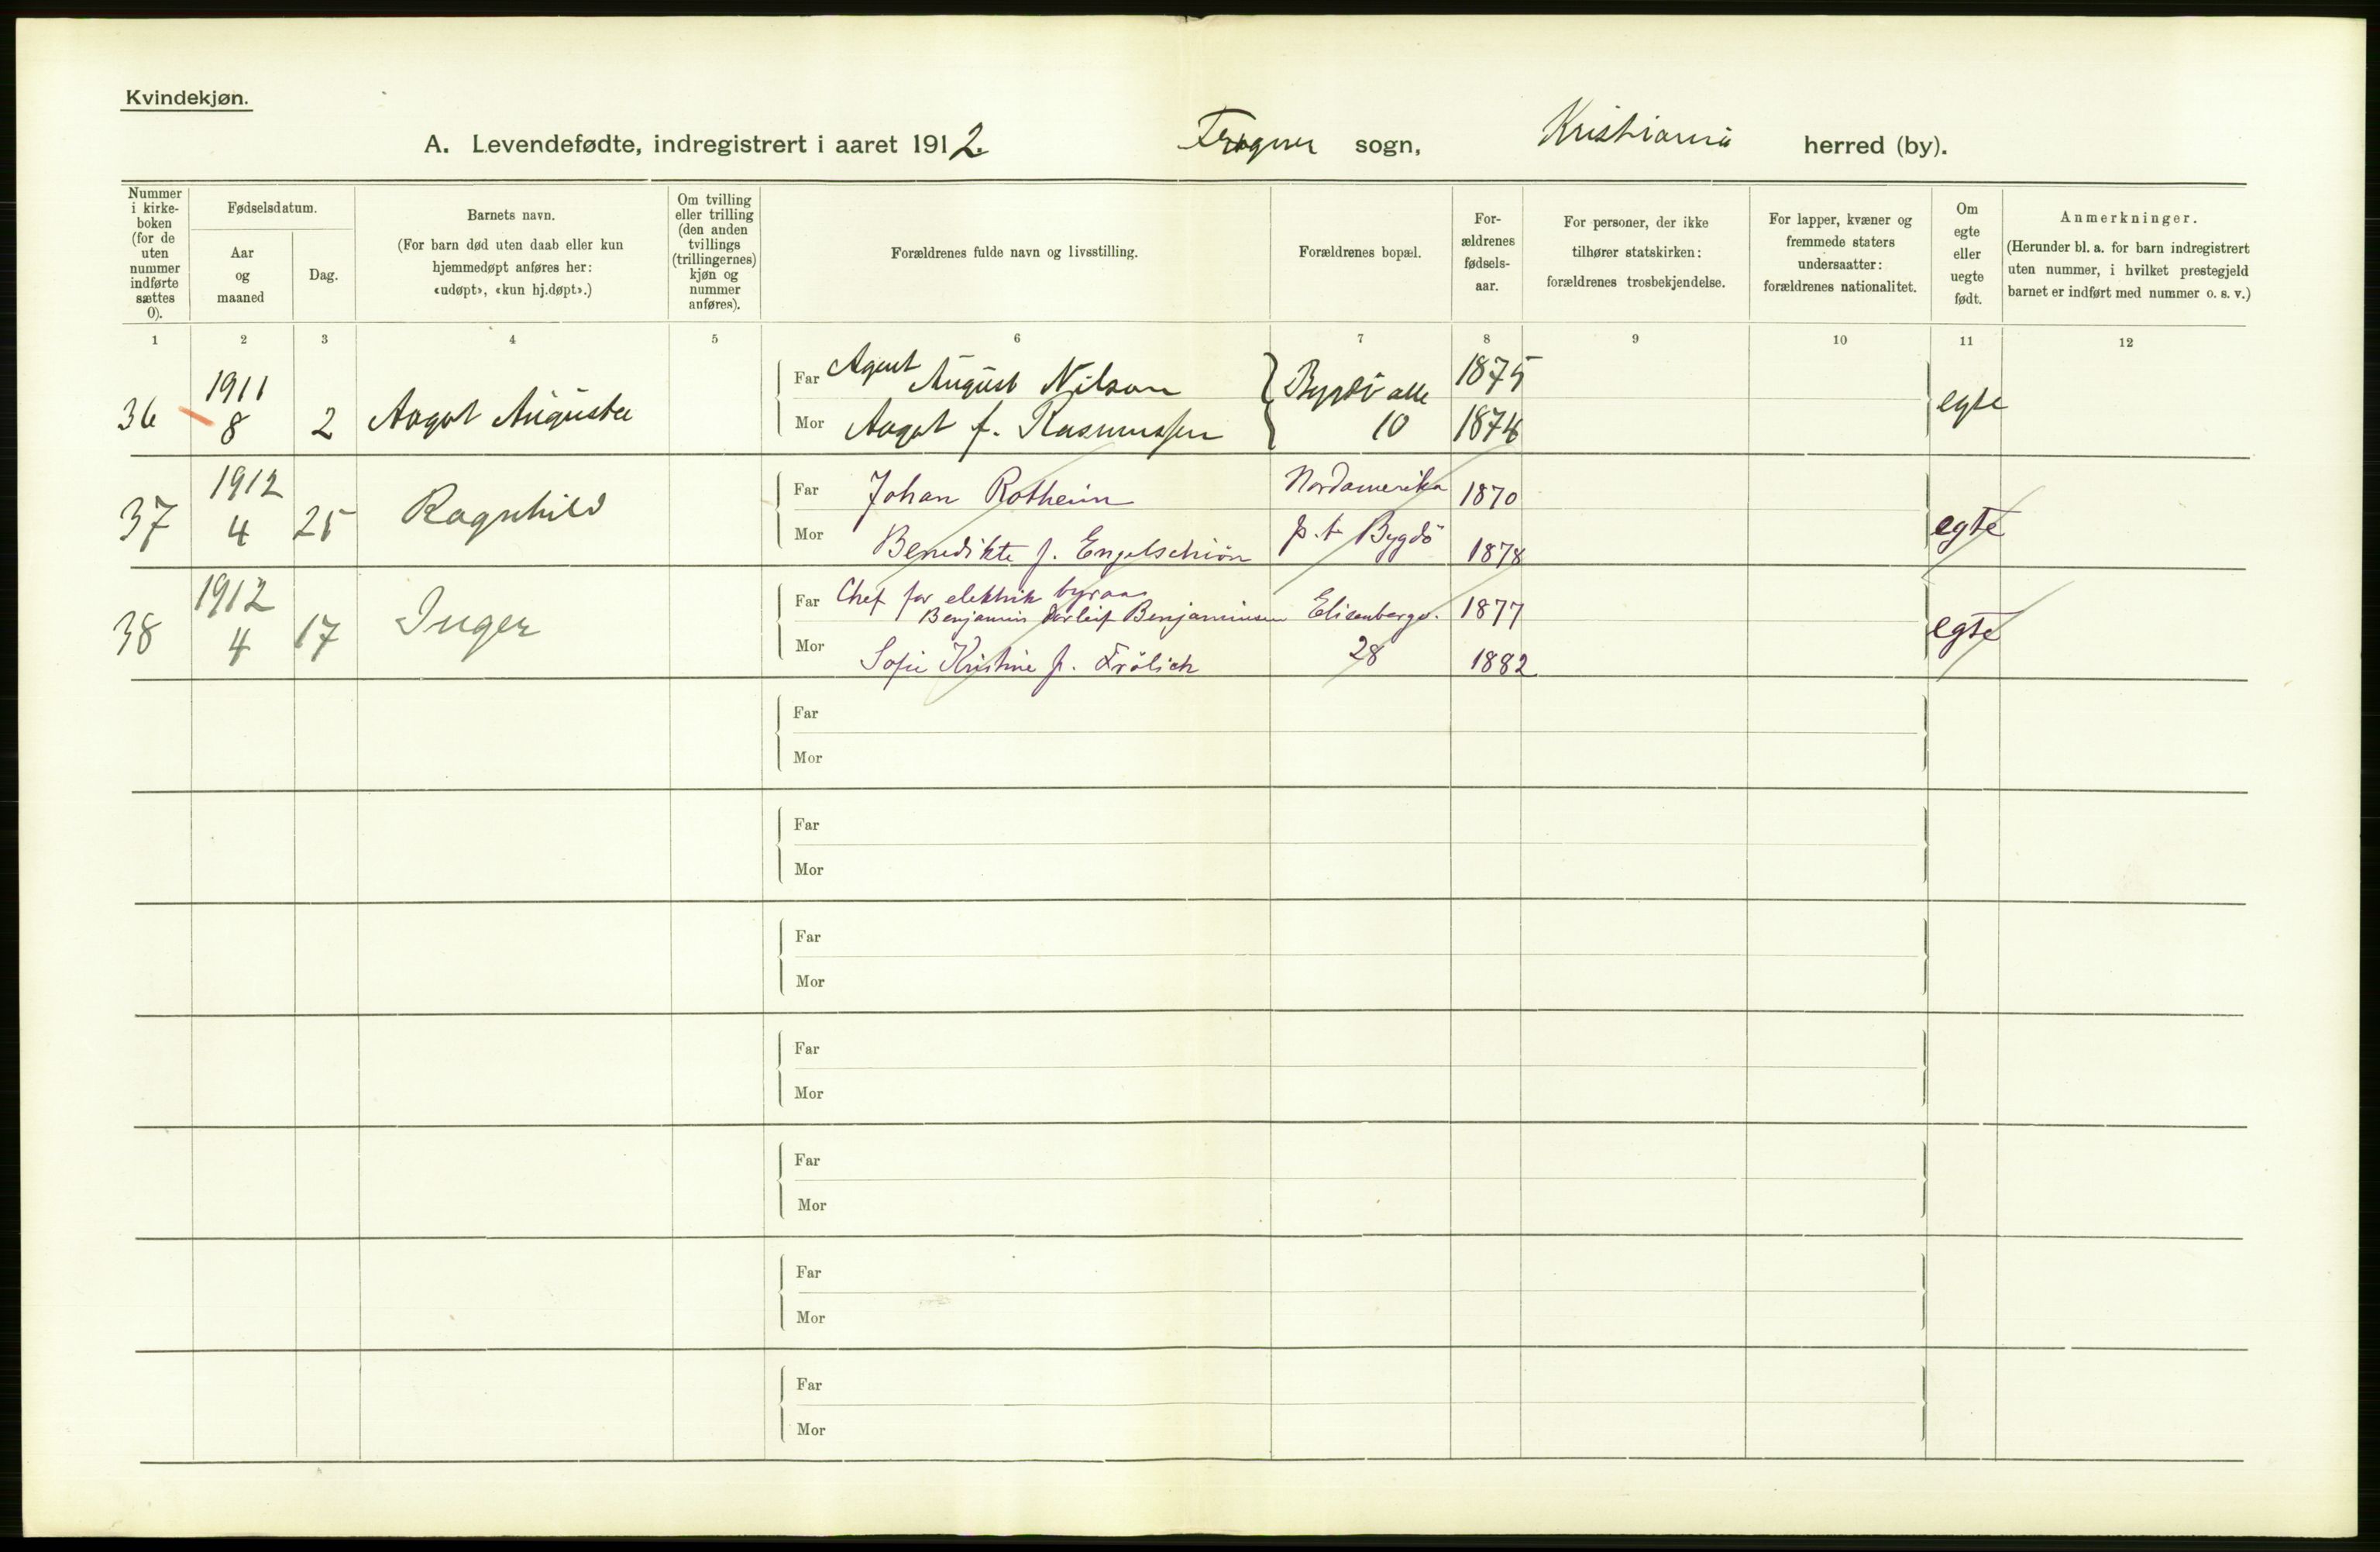 Kvindekjøn.
A. Levendefødte, indregistrert i aaret 1912. Frogner sogn, Kristiania herred (by).
Nummer i kirke-boken (for de uten nummer indførte sættes 0).
Fødselsdatum.
Aar og maaned
Dag.
Barnets navn.
(For barn død uten daab eller kun hjemmedøpt anføres her: «udøpt», «kun hj.døpt».)
Om tvilling eller trilling (den anden tvillings (trillingernes) kjøn og nummer anføres).
Forældrenes fulde navn og livsstilling.
Forældrenes bopæl.
For-ældrenes fødsels-aar.
For personer, der ikke tilhører statskirken: forældrenes trosbekjendelse.
For lapper, kvæner og fremmede staters undersaatter: forældrenes nationalitet.
Om egte eller uegte født.
Anmerkninger.
(Herunder bl. a. for barn indregistrert uten nummer, i hvilket prestegjeld barnet er indført med nummer o. s. v.)
1 2 3 4 5 6 7 8 9 10 11 12
36 1911 8 2 Aagot Augusta
Far Agent August Nilson Bygdö alle 1875 egte
Mor Aagot f. Rasmussen 10 1874
37 1912 4 25 Ragnhild
Far Johan Rotheim Nordamerika 1870 egte
Mor Benedikte f. Engelschiön p.t. Bygdö 1878
38 1912 4 17 Inger
Far Chef for elektrik byraa
Benjamin Torleif Benjaminsen Elisenbergv. 1877 egte
Mor Sofie Kristine f. Frölich 28 1882
Far
Mor
Far
Mor
Far
Mor
Far
Mor
Far
Mor
Far
Mor
Far
Mor